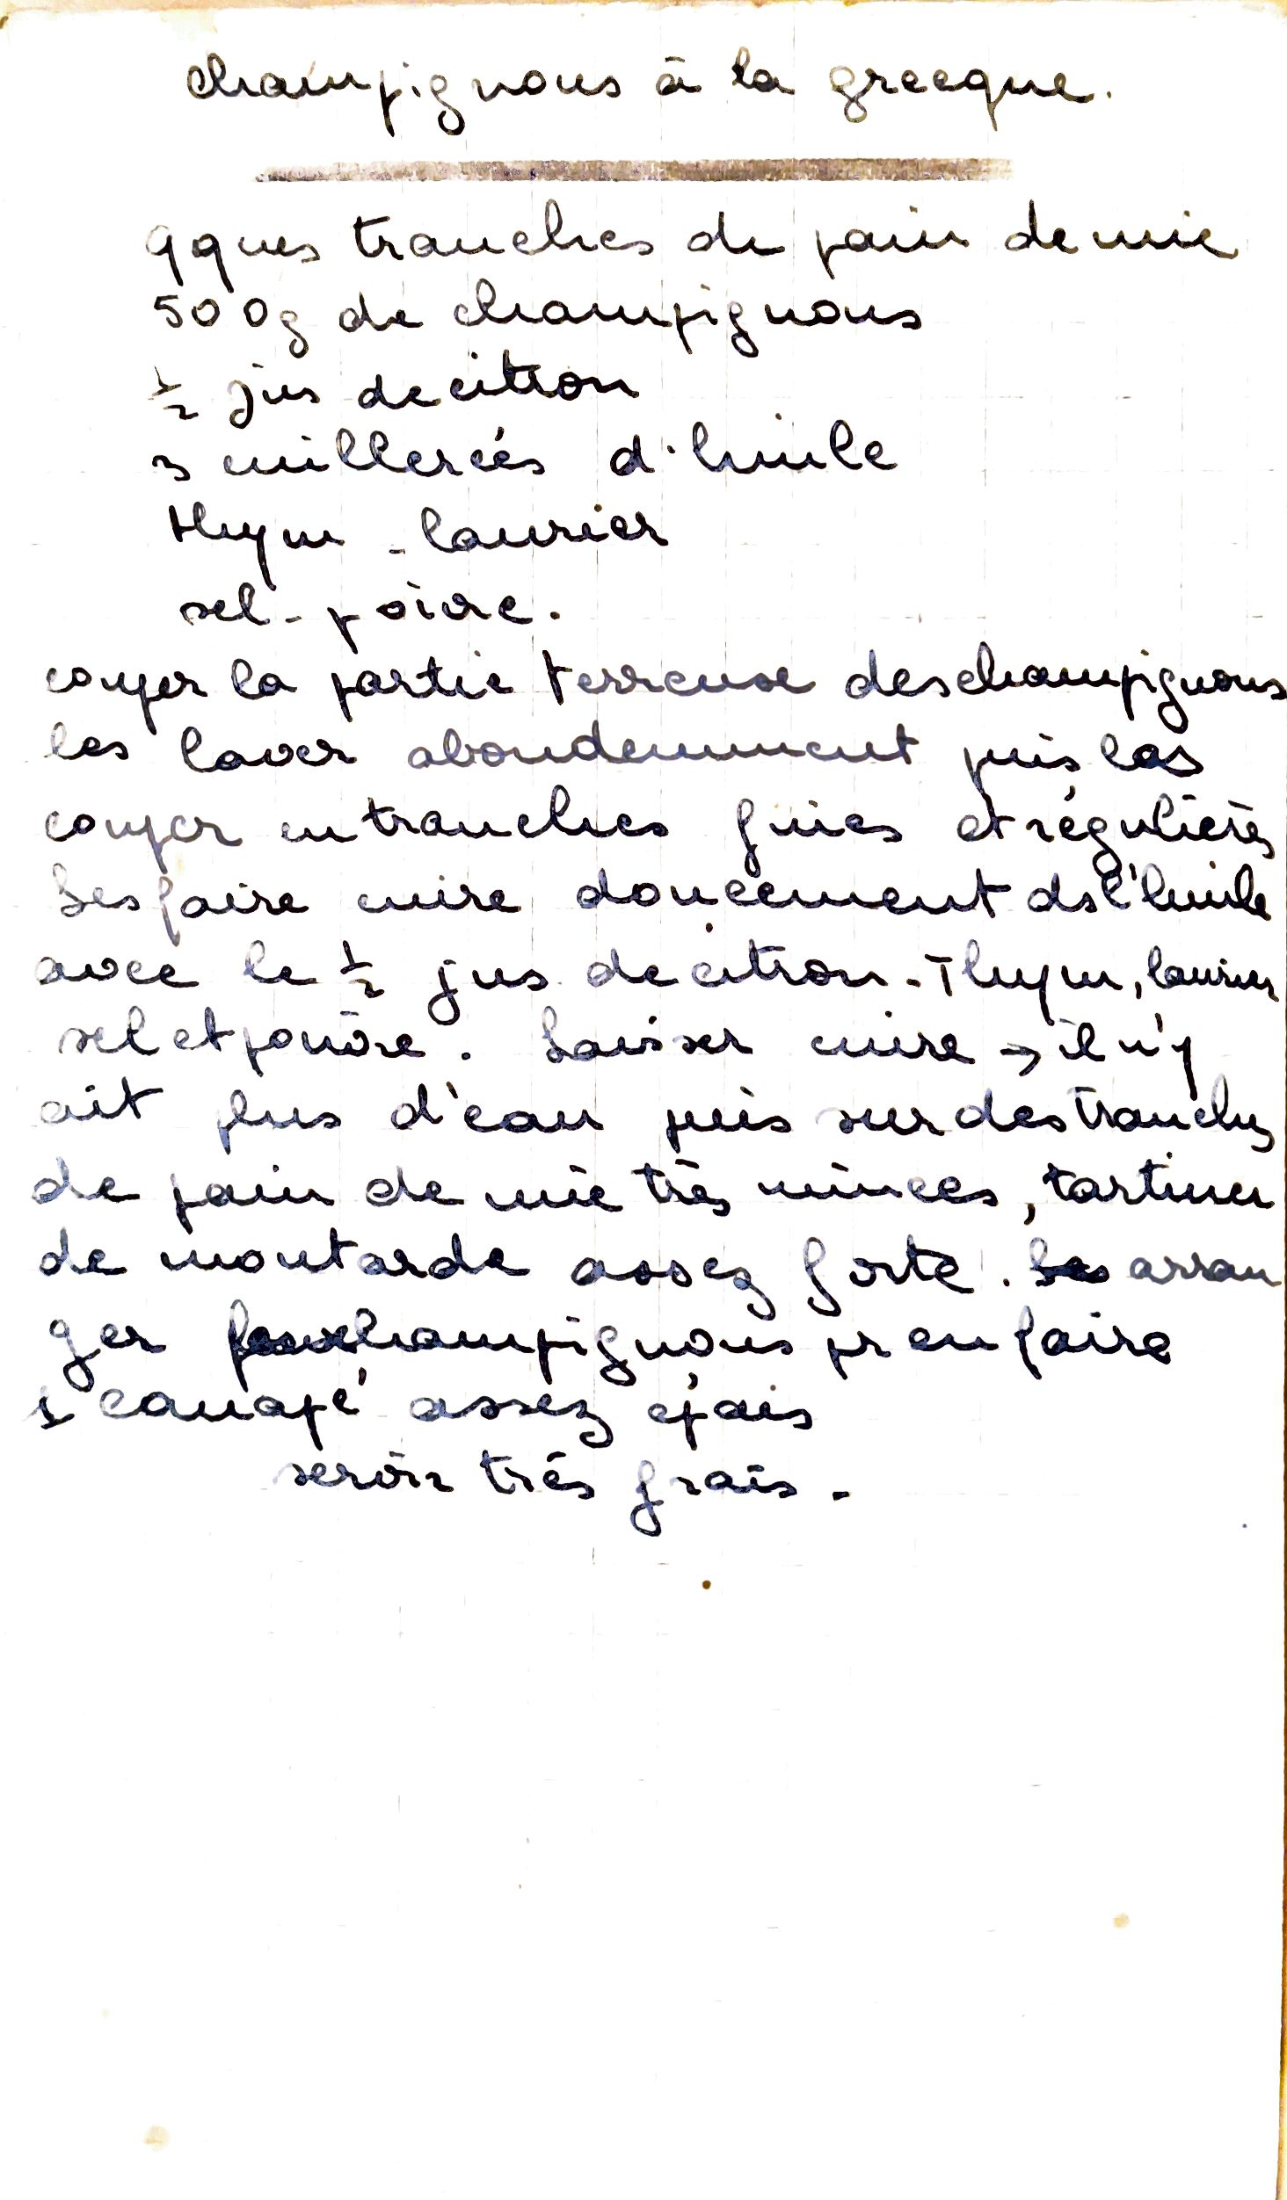 champignons à la grecque.
qques tranches de pain de mie
500g de champignons
1/2 jus de citron
3 cuillerées d'huile
thym - laurier
sel - poivre.
couper la partie terreuse des champignons
les laver abondemment puis les
couper en tranches fines et régulières
Les faire cuire doucement ds l'huile
avec le 1/2 jus de citron - Thym, laurier
sel et poivre. Laisser cuire → il n'y
ait plus d'eau puis sur des tranches
de pain de mie très minces, tartiner
de moutarde assez forte. arran
ger champignons pr en faire
1 canapé assez épais
servir très frais -